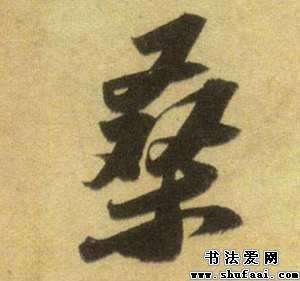 桑
书法爱网
www.shufaai.com